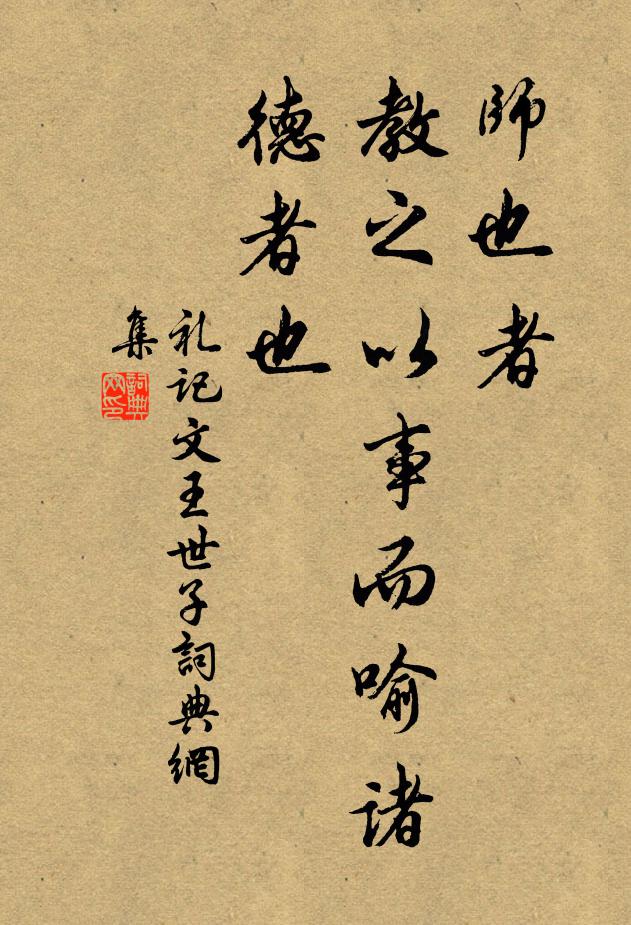 師也者
教之以事而喻諸
德者也
礼记文王世子詞典網
集
詞典網印